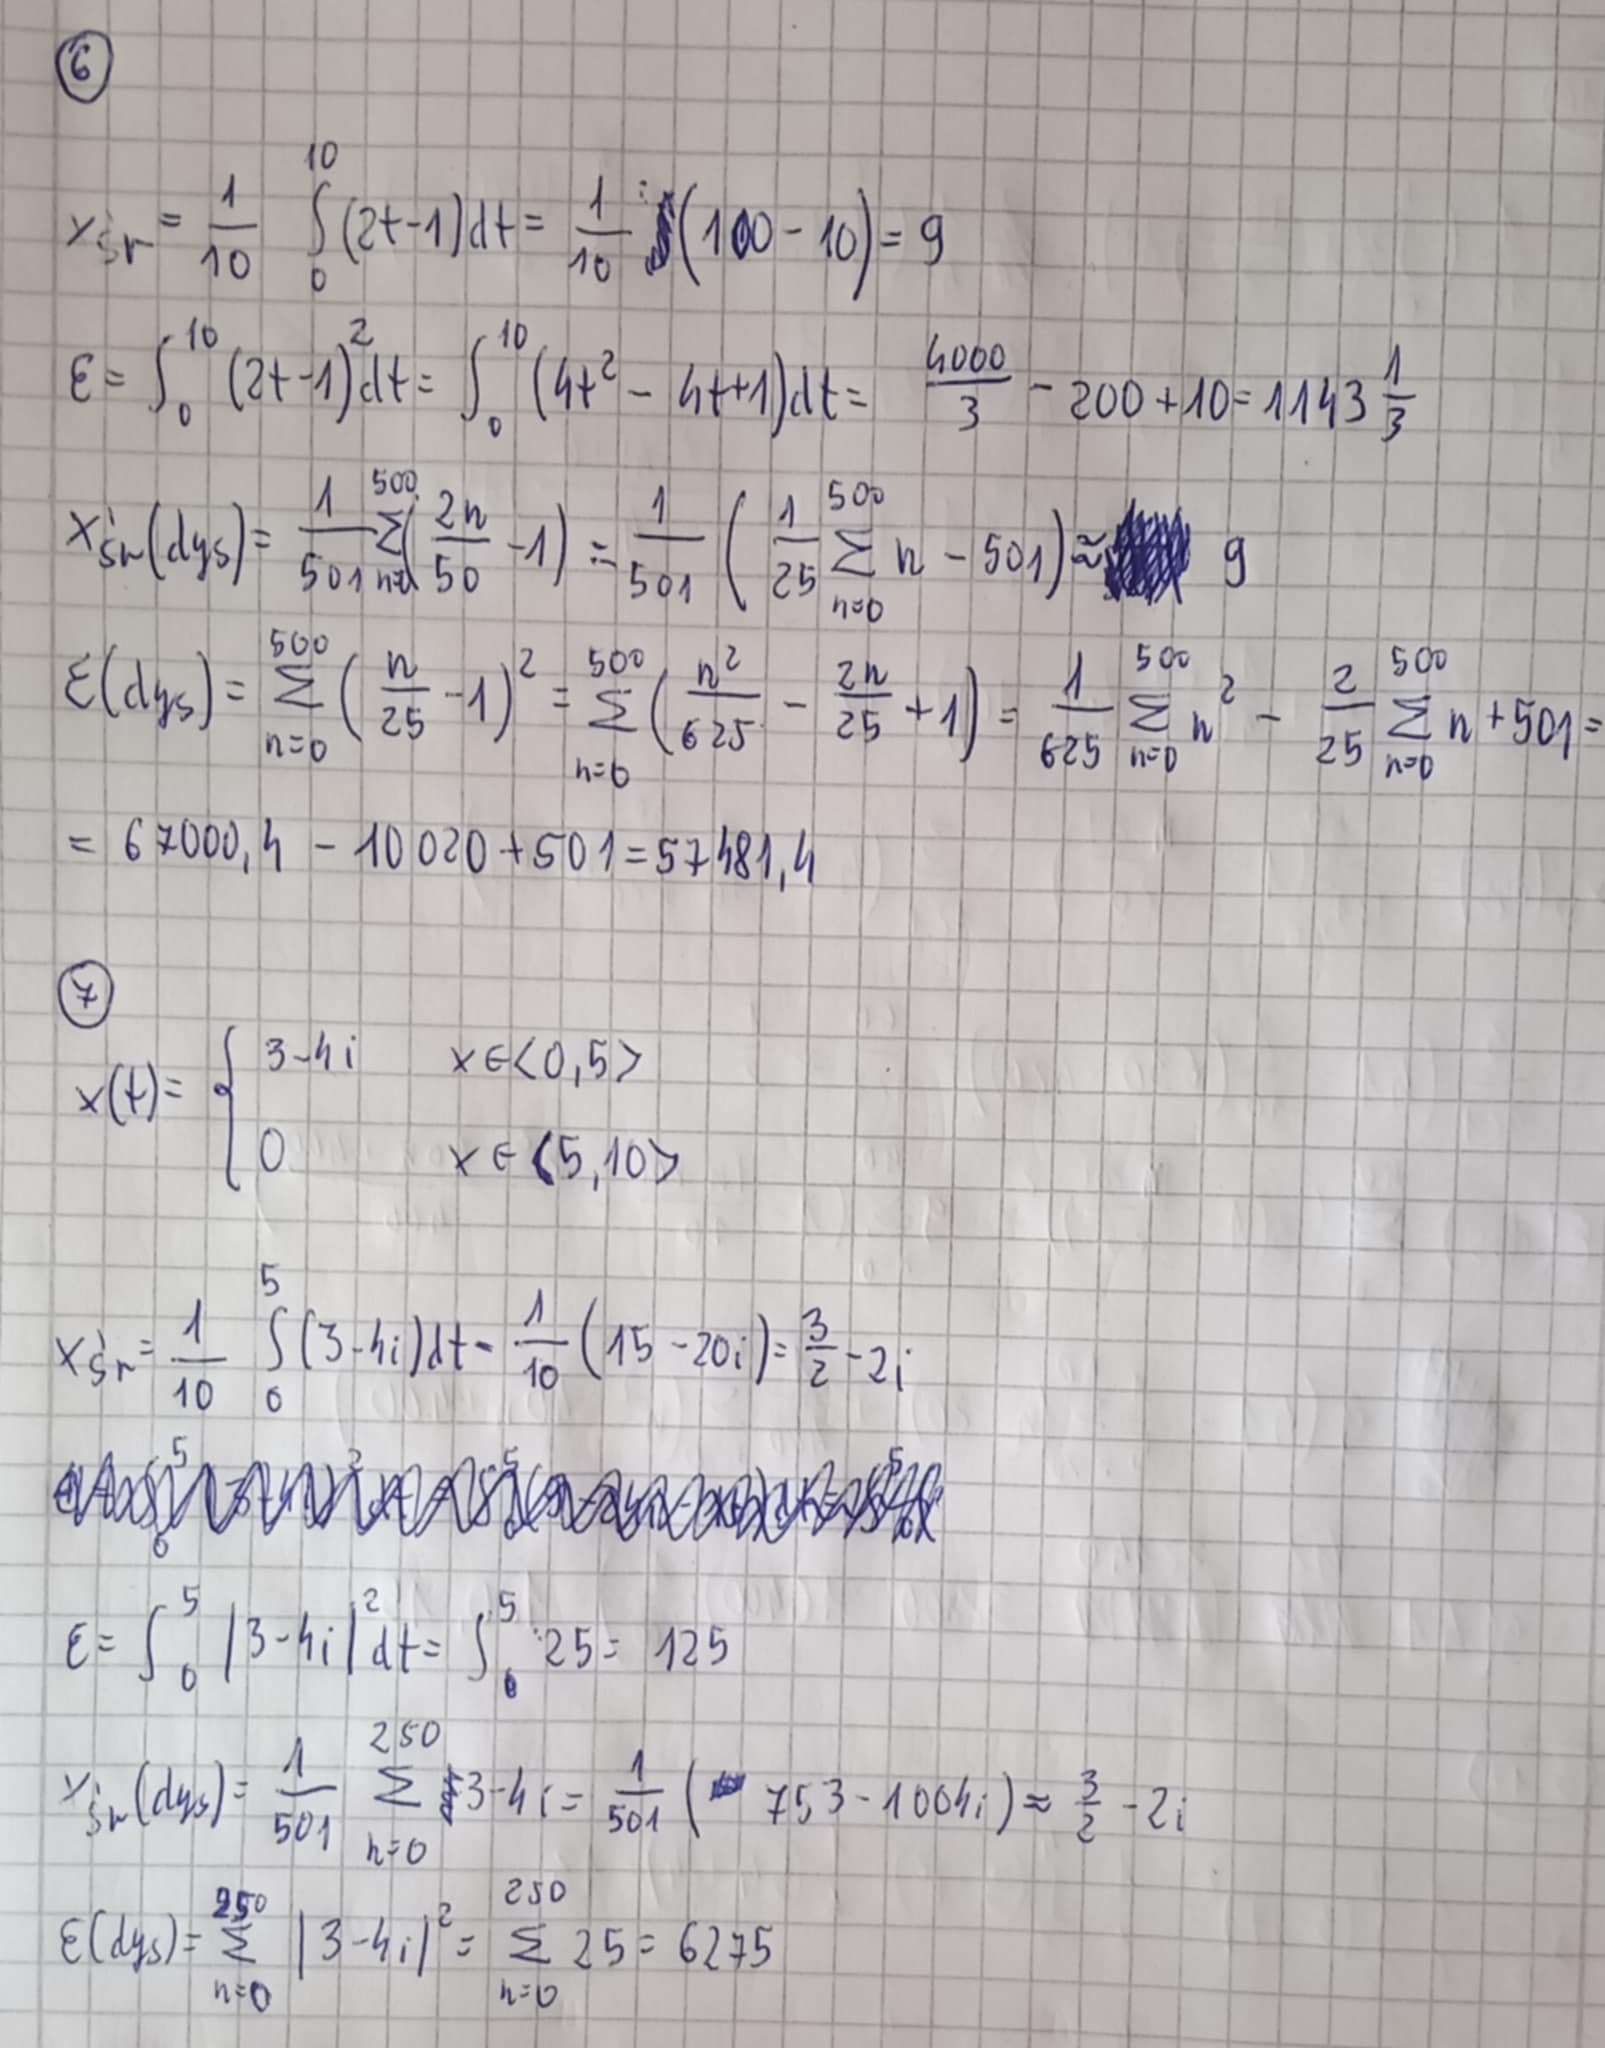 6
xśr = 1/10 ∫₀¹⁰ (2t-1)dt = 1/10 (100 - 10) = 9
ε = ∫₀¹⁰ (2t-1)² dt = ∫₀¹⁰ (4t² - 4t+1)dt = 4000/3 - 200 + 10 = 1143 1/3
xśr(dys) = 1/501 Σₙ₌₀⁵⁰⁰ (2n/50 - 1) = 1/501 ( 1/25 Σₙ₌₀⁵⁰⁰ n - 501) ≈ 9
ε(dys) = Σₙ₌₀⁵⁰⁰ ( n/25 - 1)² = Σₙ₌₀⁵⁰⁰ ( n²/625 - 2n/25 + 1) = 1/625 Σₙ₌₀⁵⁰⁰ n² - 2/25 Σₙ₌₀⁵⁰⁰ n + 501 =
= 67000,4 - 10020 + 501 = 57481,4
7
x(t) = { 3-4i x∈<0,5>
0 x∈(5,10>
xśr = 1/10 ∫₀⁵ (3-4i)dt = 1/10 (15 - 20i) = 3/2 - 2i
ε = ∫₀⁵ |3-4i|² dt = ∫₀⁵ 25 = 125
xśr(dys) = 1/501 Σₙ₌₀²⁵⁰ 3-4i = 1/501 ( 753 - 1004i) ≈ 3/2 - 2i
ε(dys) = Σₙ₌₀²⁵⁰ |3-4i|² = Σₙ₌₀²⁵⁰ 25 = 6275